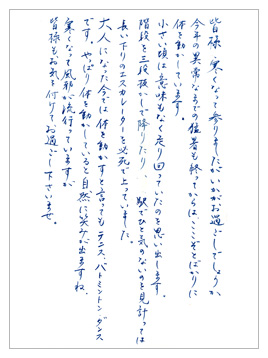 皆様、寒くなって参りましたがいかがお過ごしでしょうか。
今年の異常なまでの猛暑も終ってからは、ここぞとばかりに
体を動かしています。
小さい頃は意味もなく走り回っていたのを思い出します。
階段を三段抜かしで降りたり、駅でひと気のないのを見計っては
長い下りのエスカレーターを必死で上っていました。
大人になった今では体を動かすと言ってもテニス、バトミントン、ダンス
です。やっぱり体を動かしていると自然に笑みが出ますね。
寒くなって風邪が流行っていますが、
皆様もお気を付けてお過ごし下さいませ。